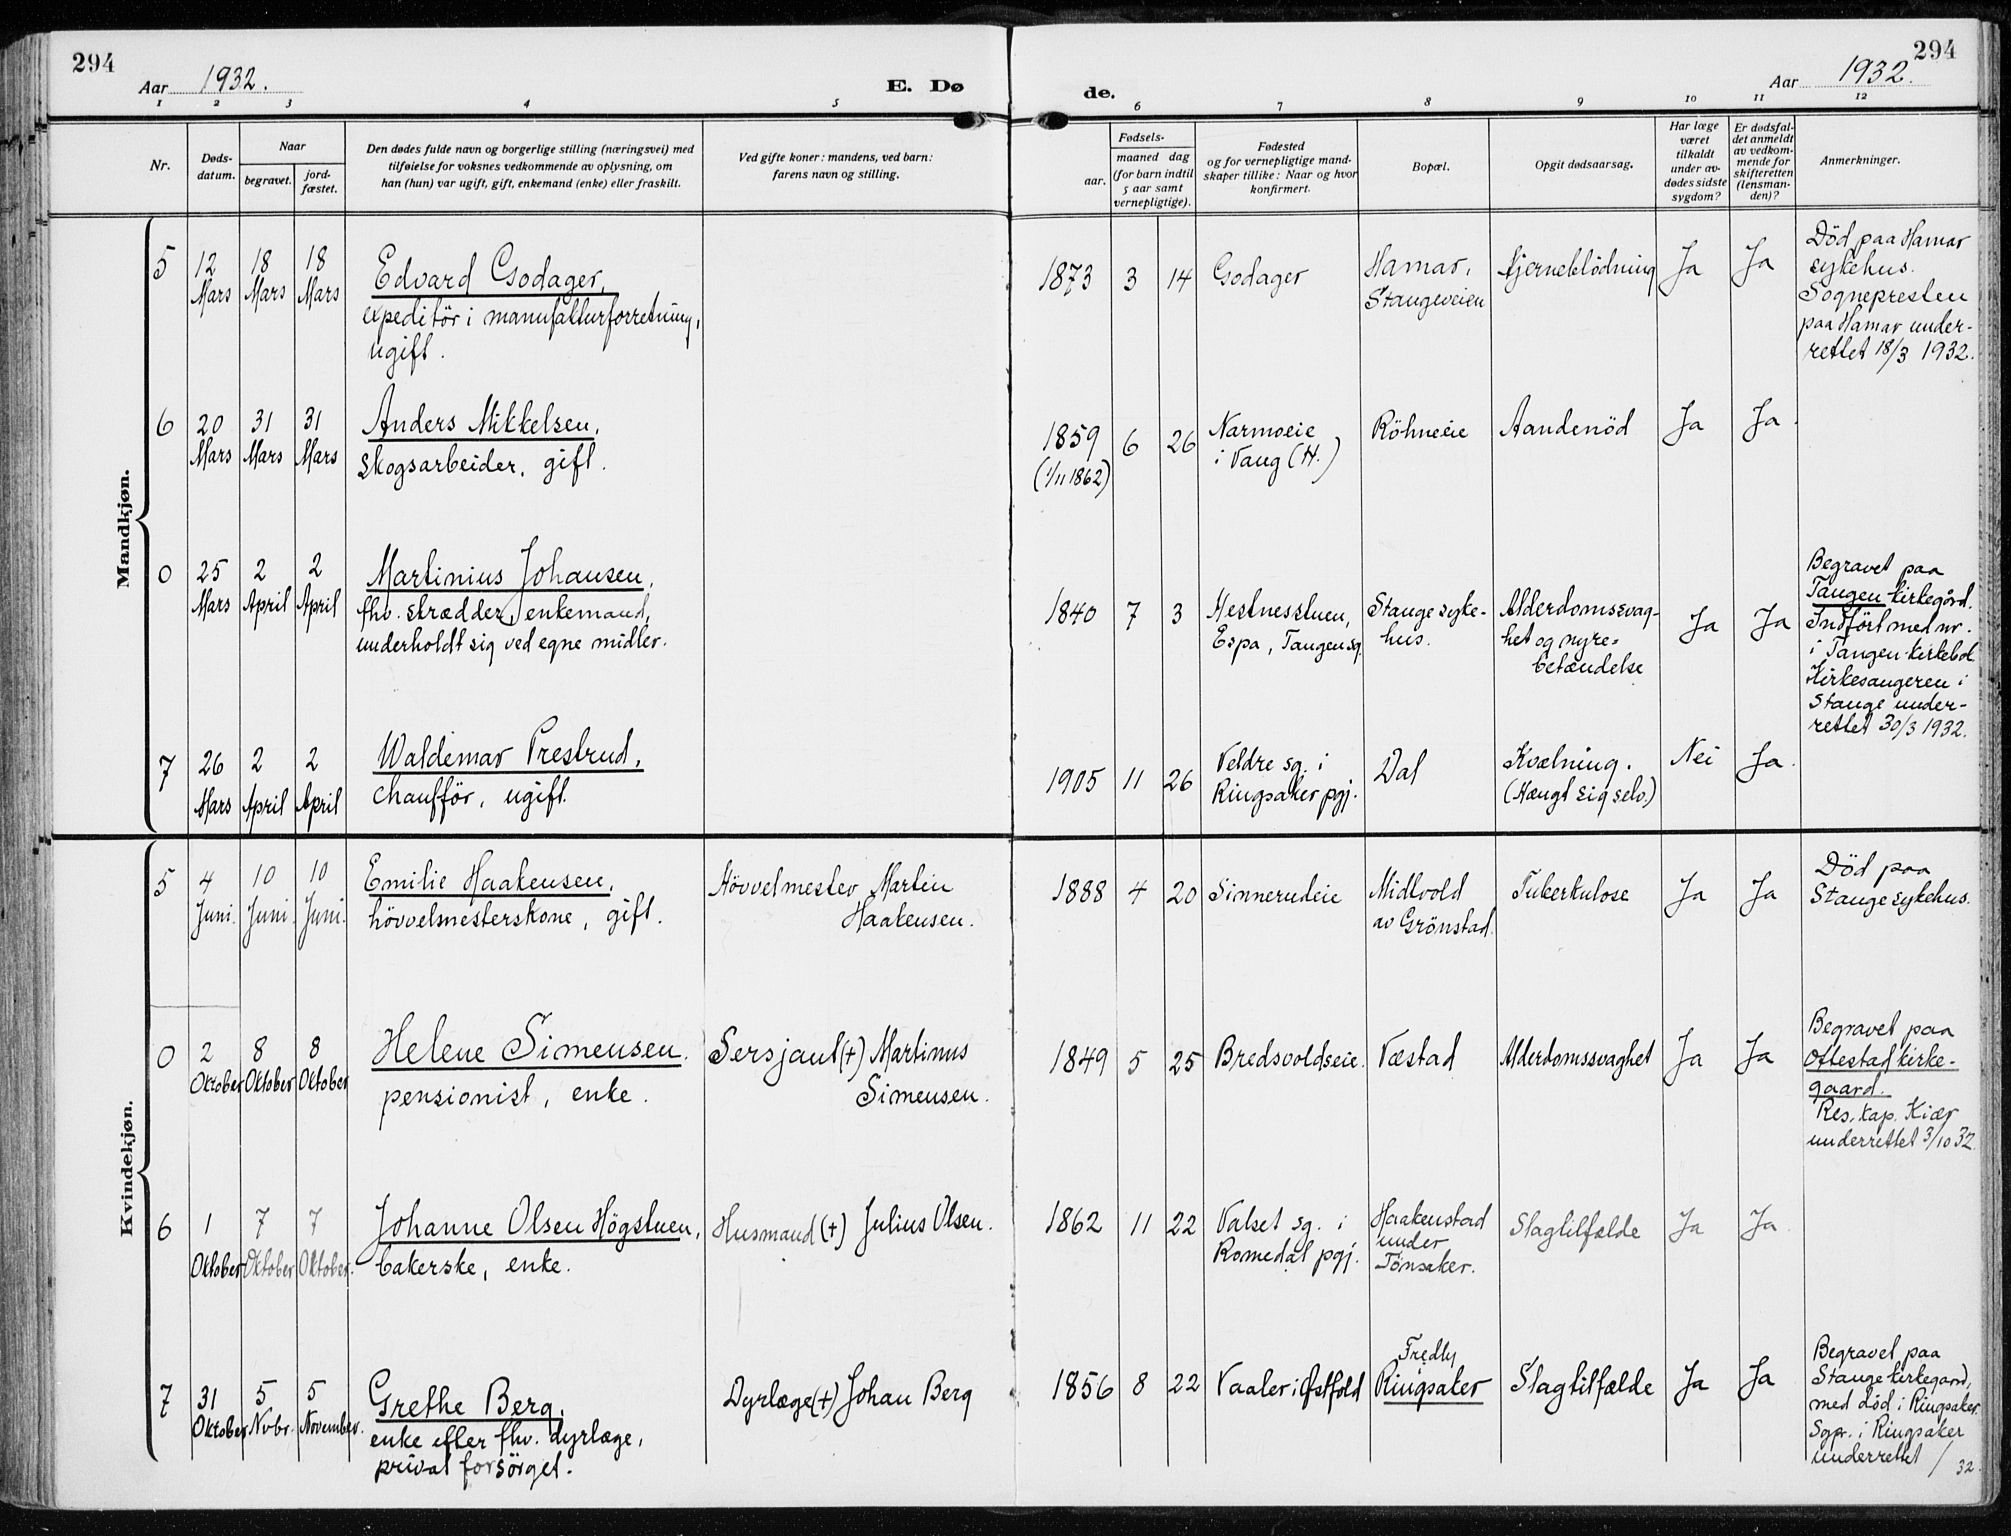 294
Aar 1932.
E. Dø
de.
Aar 1932.
294
1 2 3 4 5 6 7 8 9 10 11 12
Nr.
Døds-
datum.
Naar
begravet.
jord-
fæstet.
Den dødes fulde navn og borgerlige stilling (næringsvei) med
tilføielse for voksnes vedkommende av oplysning, om
han (hun) var ugift, gift, enkemand (enke) eller fraskilt.
Ved gifte koner: mandens, ved barn:
farens navn og stilling.
Fødsels-
aar.
maaned dag
(for barn indtil
5 aar samt
vernepligtige).
Fødested
og for vernepligtige mand-
skaper tillike: Naar og hvor
konfirmert.
Bopæl.
Opgit dødsaarsag.
Har læge
været
tilkaldt
under av-
dødes sidste
sygdom?
Er dødsfal-
det anmeldt
av vedkom-
mende for
skifteretten
(lensman-
den)?
Anmerkninger.
Mandkjøn.
5
12
Mars
18
Mars
18
Mars
Edvard Gsodager,
expeditör i manufakturforretning,
ugift.
1873
3
14
Gsodager
Hamar,
Stangeveien
Hjerneblödning
Ja
Ja
Död paa Hamar
sykehus.
Sognepresten
paa Hamar under-
rettet 18/3 1932.
6
20
Mars
31
Mars
31
Mars
Anders Mikkelsen,
skogsarbeider, gift.
1859
(1/11 1862)
6
26
Narmoeie
i Vang (H.)
Röhneeie
Aandenöd
Ja
Ja.
0
25
Mars
2
April
2
April
Martinius Johansen,
fhv. skrædder, enkemand,
underholdt sig ved egne midler.
1840
7
3
Hestnesstuen,
Espa, Tangen sg.
Stange syke-
hus.
Alderdomssvag-
het og nyre-
betændelse
Ja
Ja
Begravet paa
Tangen kirkegård.
Indført med nr.
i Tangen kirkebok.
Kirkesangeren i
Stange under-
rettet 30/3 1932.
7
26
Mars
2
April
2
April
Waldemar Prestrud,
chafför, ugift.
1905
11
26
Veldre sg. i
Ringsaker pgj.
Dal
Kvælning.
(Hængt sig selv.)
Nei
Ja.
Kvindekjøn.
5
4
Juni.
10
Juni.
10
Juni.
Emilie Haakensen,
hövvelmesterskone, gift.
Hövvelmester Martin
Haakensen.
1888
4
20
Sinnerudeie
Midtvold
av Grönstad.
Tuberkulose
Ja
Ja
Död paa
Stange sykehus.
0
2
Oktober
8
Oktober
8
Oktober
Helene Simensen.
pensionist, enke.
Sersjant (+) Martinus
Simensen.
1849
5
25
Bredsvoldseie.
Væstad
Alderdomssvaghet
Ja
Ja
Begravet paa
Ottestad kirke-
gaard.
Res. kap. Kiær
underrettet 3/10 32.
6
1
Oktober
7
Oktober
7
Oktober.
Johanne Olsen Högstuen,
bakerske, enke.
Husmand (+) Julius Olsen.
1862
11
22
Valset sg. i
Romedal pgj.
Haakenstad
under
Tönsaker.
Slagtilfælde
Ja
Ja.
7
31
Oktober
5
Nvbr.
5
November.
Grethe Berg,
enke efter fhv. dyrlæge,
privat forsörget.
Dyrlæge (+) Johan Berg
1856
8
22
Vaaler i Østfold
Fredly
Ringsaker
Slagtilfælde
Ja
Ja
Begravet paa
Stange kirkegaard,
med död i Ringsaker.
Sgpr. i Ringsaker
underrettet / 32.